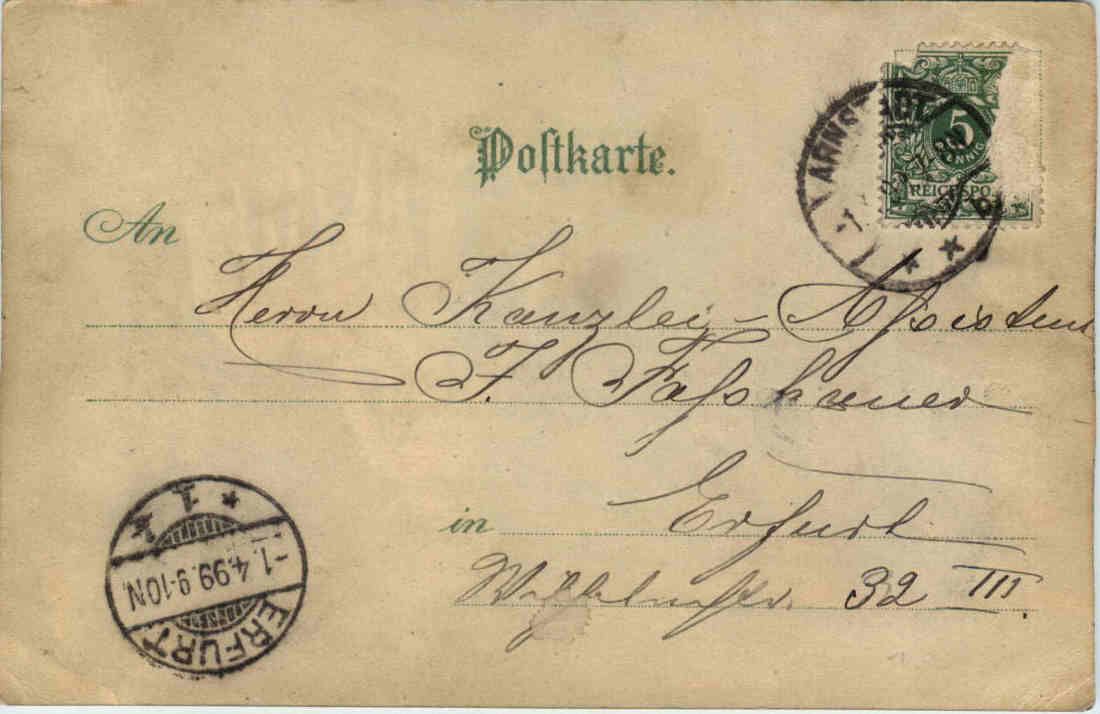 Postkarte.
ARNSTADT
5
PFENNIG
REICHSPO
An
Herrn Kanzlei-Assistent
F.
in Erfurt
32 III
1
-1.4.99.9-10N.
ERFURT